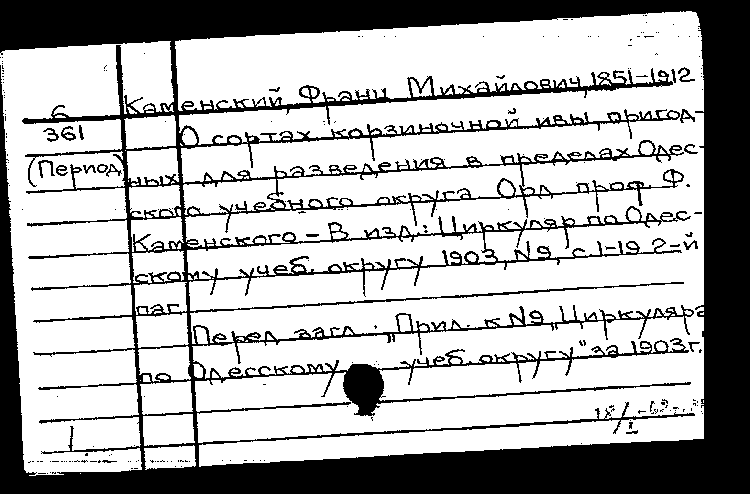 Каменский, Франц Михайлович, 1851-1912
6
361
(Период)
О сортах корзиночной ивы, пригод-
ных для разведения в пределах Одес-
ского учебного округа Орд проф Ф.
Каменского – В изд.: Циркуляр по Одес-
скому учеб. округу 1903, №9, с.1-19 2-й
паг.
Перед загл.: „Прил. к №9 „Циркуляра
по Одесскому учеб. округу" за 1903г.
1
18/I-62г.